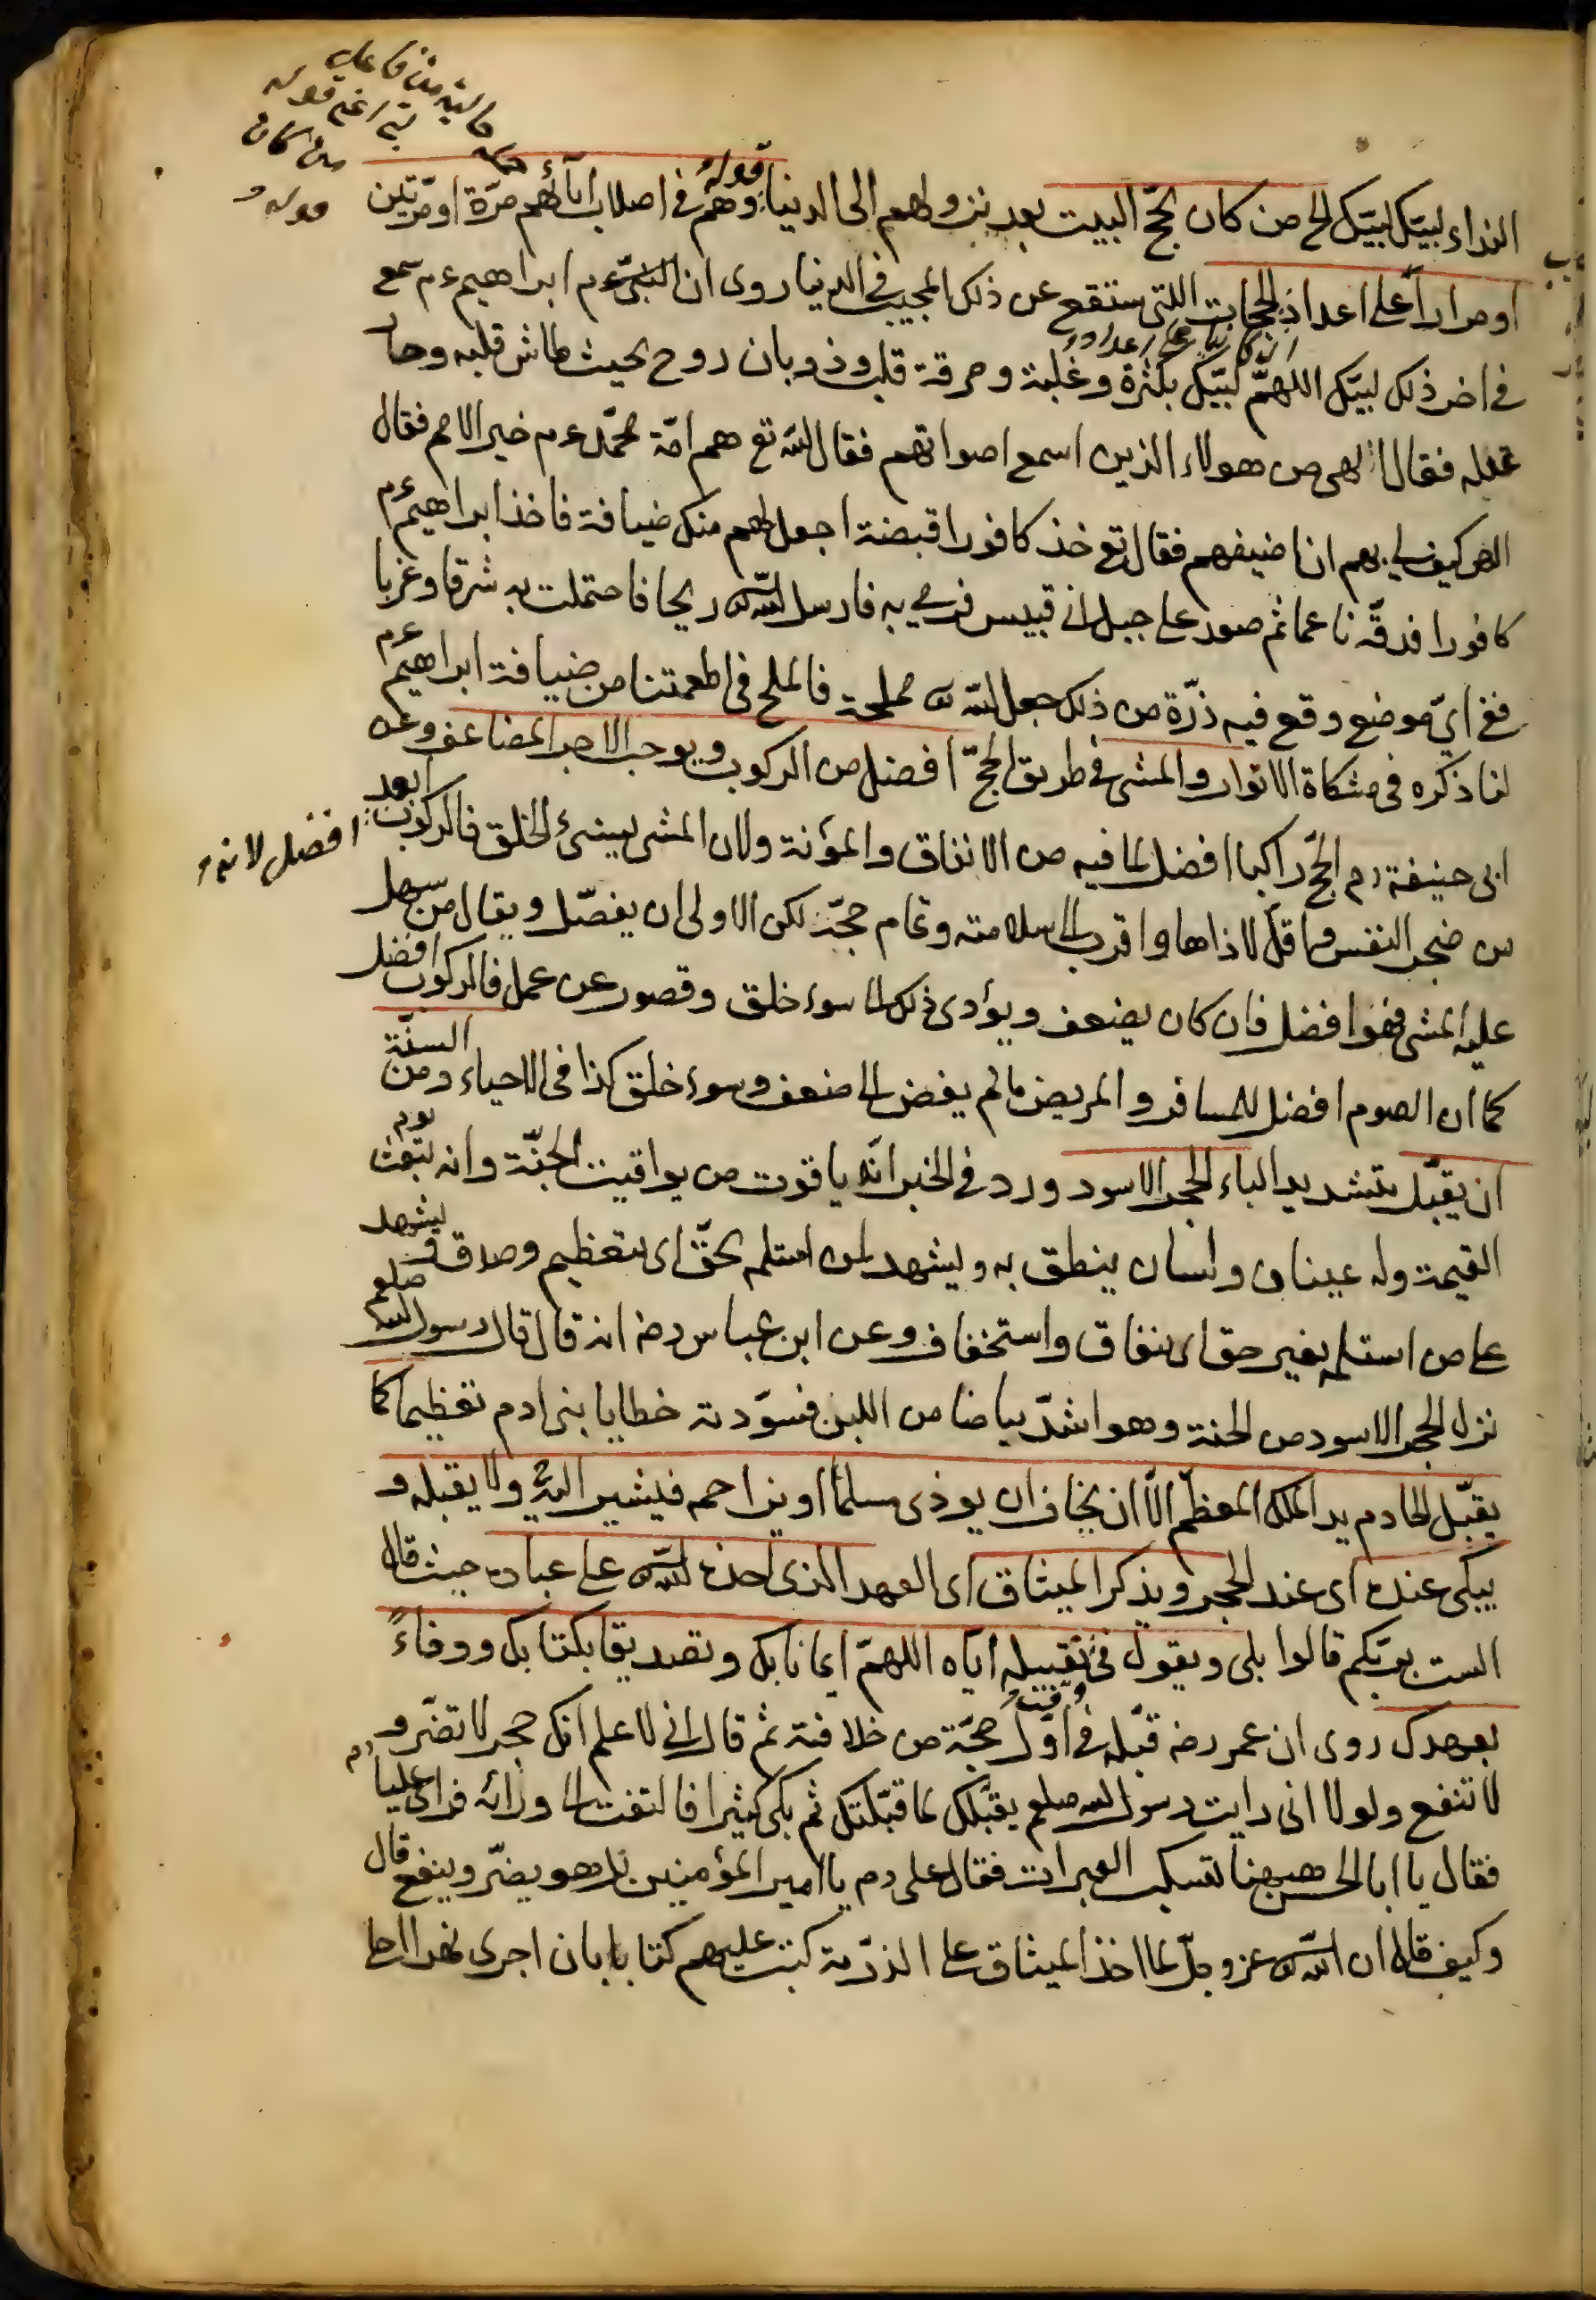 النداء لبيك لبيك الخ من كان يحجّ البيت بعد نزولهم الى الدنيا وهم في اصلاب آبائهم مرّة او مرّتين
او مرارا على اعداد الحجات اللتى ستقع عن ذلك المجيب في الدنيا روى ان النبىّ ءم ابراهيم ءم سمع
في اخر ذلك لبيك اللهمّ لبيّك بكثرة وغلبة وحرقة قلب وذوبان روح بحيث طاش قلبه وحار
عقله فقال الهى من هولاء الذين اسمع اصواتهم فقال الله تع هم امّة محمّد ءم خير الامم فقال
الهى كيف لى بهم انا ضيفهم فقال تع خذ كافورا قبضة اجعل لهم منك ضيافة فاخذ ابراهيم ءم
كافورا فدقّه ناعما ثم صعد على جبل ابى قبيس فرمى به فارسل الله ريحا فاحتملت به شرقا وغربا
ففي اىّ موضع وقع فيه ذرّة من ذلك جعل الله مملحة فالملح في اطعمتنا من ضيافة ابراهيم ءم
لنا ذكره في مشكاة الانوار والمشى في طريق الحجّ افضل من الركوب ويوجب الاجر المضاعف وعن
ابى حنيفة رم الحجّ راكبا افضل لما فيه من الانفاق والمؤنة ولان المشى يسئ الخلق فالركوب ابعد
افضل لانه
من ضجر النفس واقلّ لاذاها واقرب الى سلامته وتمام حجّه لكن الاولى ان يفصّل ويقال من سهل
عليه المشى فهو افضل فان كان يضعف ويؤدى ذلك الى سوء خلق وقصور عن عمل فالركوب افضل
كما ان الصوم افضل للمسافر والمريض ما لم يفض الى ضعف وسوء خلق كذا في الاحياء ومن السنّة
ان يقبّل بتشديد الباء الحجر الاسود ورد في الخبر انّه ياقوت من يواقيت الجنّة وانه يبعث يوم
القيمة وله عينان ولسان ينطق به ويشهد لمن استلمه بحقّ اى بتعظيم وصدق ويشهد
على من استلمه بغير حق اى بنفاق واستخفاف وعن ابن عباس رضه انه قال قال رسول الله صلعم
نزل الحجر الاسود من الجنة وهو اشدّ بياضا من اللبن فسوّدته خطايا بنى ادم تعظيما كما
يقبّل الخادم يد الملك المعظّم الّا ان يخاف ان يوذى مسلما او يزاحمه فيشير اليه ولا يقبله و
يبكى عنده اى عند الحجر ويذكر الميثاق اى العهد الذى اخذه الله على عباده حيث قال
الست بربّكم قالوا بلى ويقول في تقبيله ايّاه اللهمّ ايمانا بك وتصديقا بكتابك ووفاءً
بعهدك روى ان عمر رضه قبّله في اوّل حجّة من خلافته ثم قال انى لاعلم انك حجر لا تضرّ و
لا تنفع ولولا انى رايت رسول الله صلعم يقبّلك لما قبّلتك ثم بكى كثيرا فالتفت الى ورائه فراى عليا رم
فقال يا ابا الحسن ههنا تسكب العبرات فقال على رم يا امير المؤمنين بل هو يضرّ وينفع قال
وكيف قال ان الله عز وجلّ لما اخذ الميثاق على الذرّية كتب عليهم كتابا بان اجرى نهرا احلى